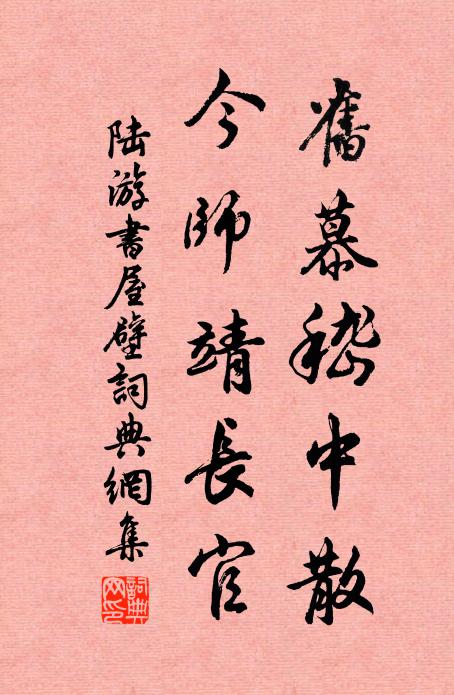 舊慕嵇中散
今師靖長官
陸游書屋壁詞典網集
詞典網印